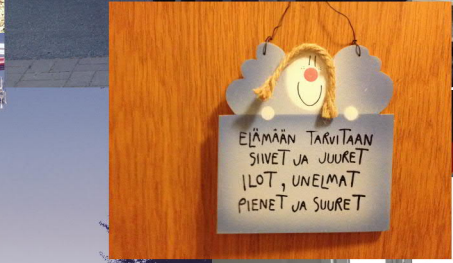 ELÄMÄÄN TARVITAAN
SIIVET JA JUURET
ILOT, UNELMAT
PIENET JA SUURET